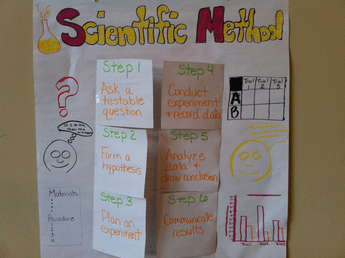 Scientific Method
Step 1
Ask a
testable
question
Step 2
Form a
hypothesis
Step 3
Plan an
experiment
Step 4
Conduct
experiment
+ record data
Step 5
Analyze
data +
draw conclusion
Step 6
Communicate
results
Trial Trial Trial
1 2 3
A
B
Materials
Procedure